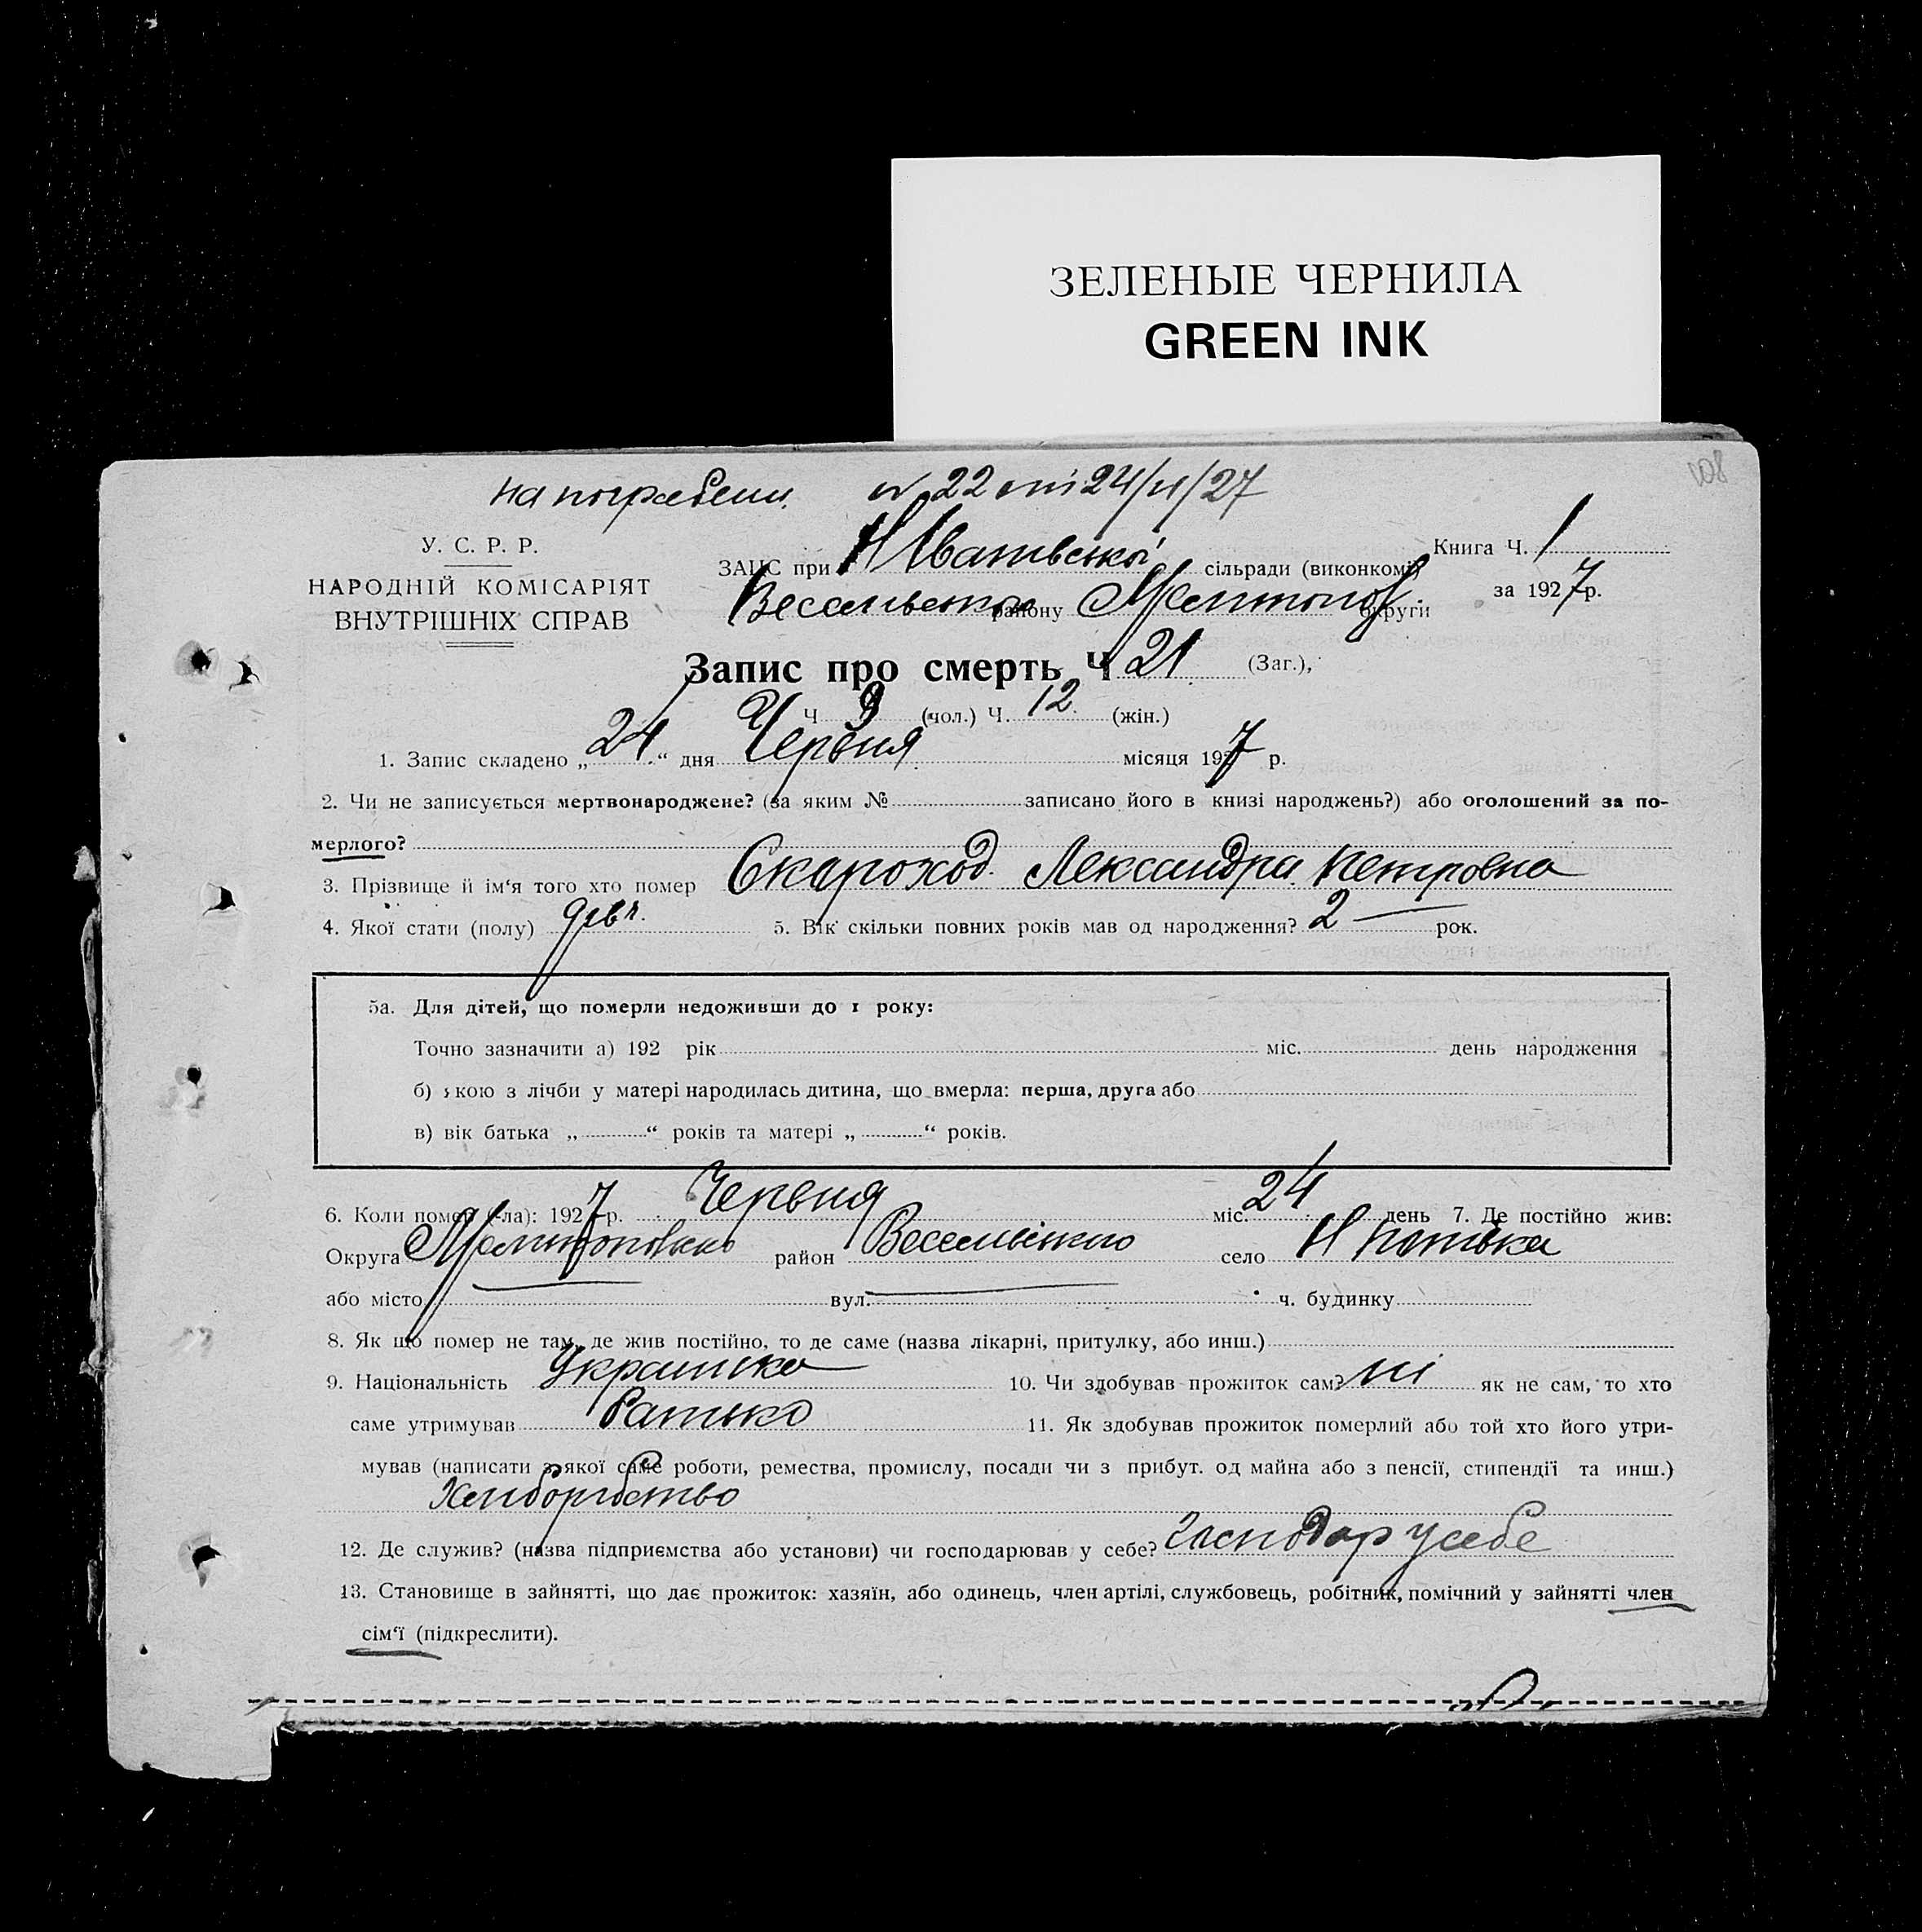 ЗЕЛЕНЫЕ ЧЕРНИЛА
GREEN INK
108
на погребени. № 22 от 24/VI/27
У. С. Р. Р.
НАРОДНІЙ КОМІСАРІЯТ
ВНУТРІШНІХ СПРАВ
ЗАГС при сільради (виконкомі)
Весельского району Мелитопол округи
Книга Ч. 1
за 1927 р.
Запис про смерть Ч 21 (Заг.),
Ч 9 (чол.) Ч. 12 (жін.)
1. Запис складено „24“ дня Червня місяця 1927 р.
2. Чи не записується мертвонароджене? (за яким № записано його в книзі народжень?) або оголошений за по-
мерлого?
3. Прізвище й ім‘я того хто помер Скароход Лександра Петровна
4. Якої стати (полу) девч. 5. Вік скільки повних років мав од народження? 2 — рок.
5а. Для дітей, що померли недоживши до 1 року:
Точно зазначити а) 192 рік міс. день народження
б) якою з лічби у матері народилась дитина, що вмерла: перша, друга або
в) вік батька „ “ років та матері „ “ років.
6. Коли помер (-ла): 1927 р. Червня міс. 24 день 7. Де постійно жив:
Округа район село
або місто вул. ч. будинку
8. Як що помер не там, де жив постійно, то де саме (назва лікарні, притулку, або инш.)
9. Національність Украинка 10. Чи здобував прожиток сам? ні як не сам, то хто
саме утримував Батько 11. Як здобував прожиток померлий або той хто його утри-
мував (написати з якої саме роботи, ремества, промислу, посади чи з прибут. од майна або з пенсії, стипендії та инш.)
Хлиборобство
12. Де служив? (назва підприємства або установи) чи господарював у себе? Господар у себе
13. Становище в зайнятті, що дає прожиток: хазяїн, або одинець, член артілі, службовець, робітник, помічний у зайнятті член
сім‘ї (підкреслити).